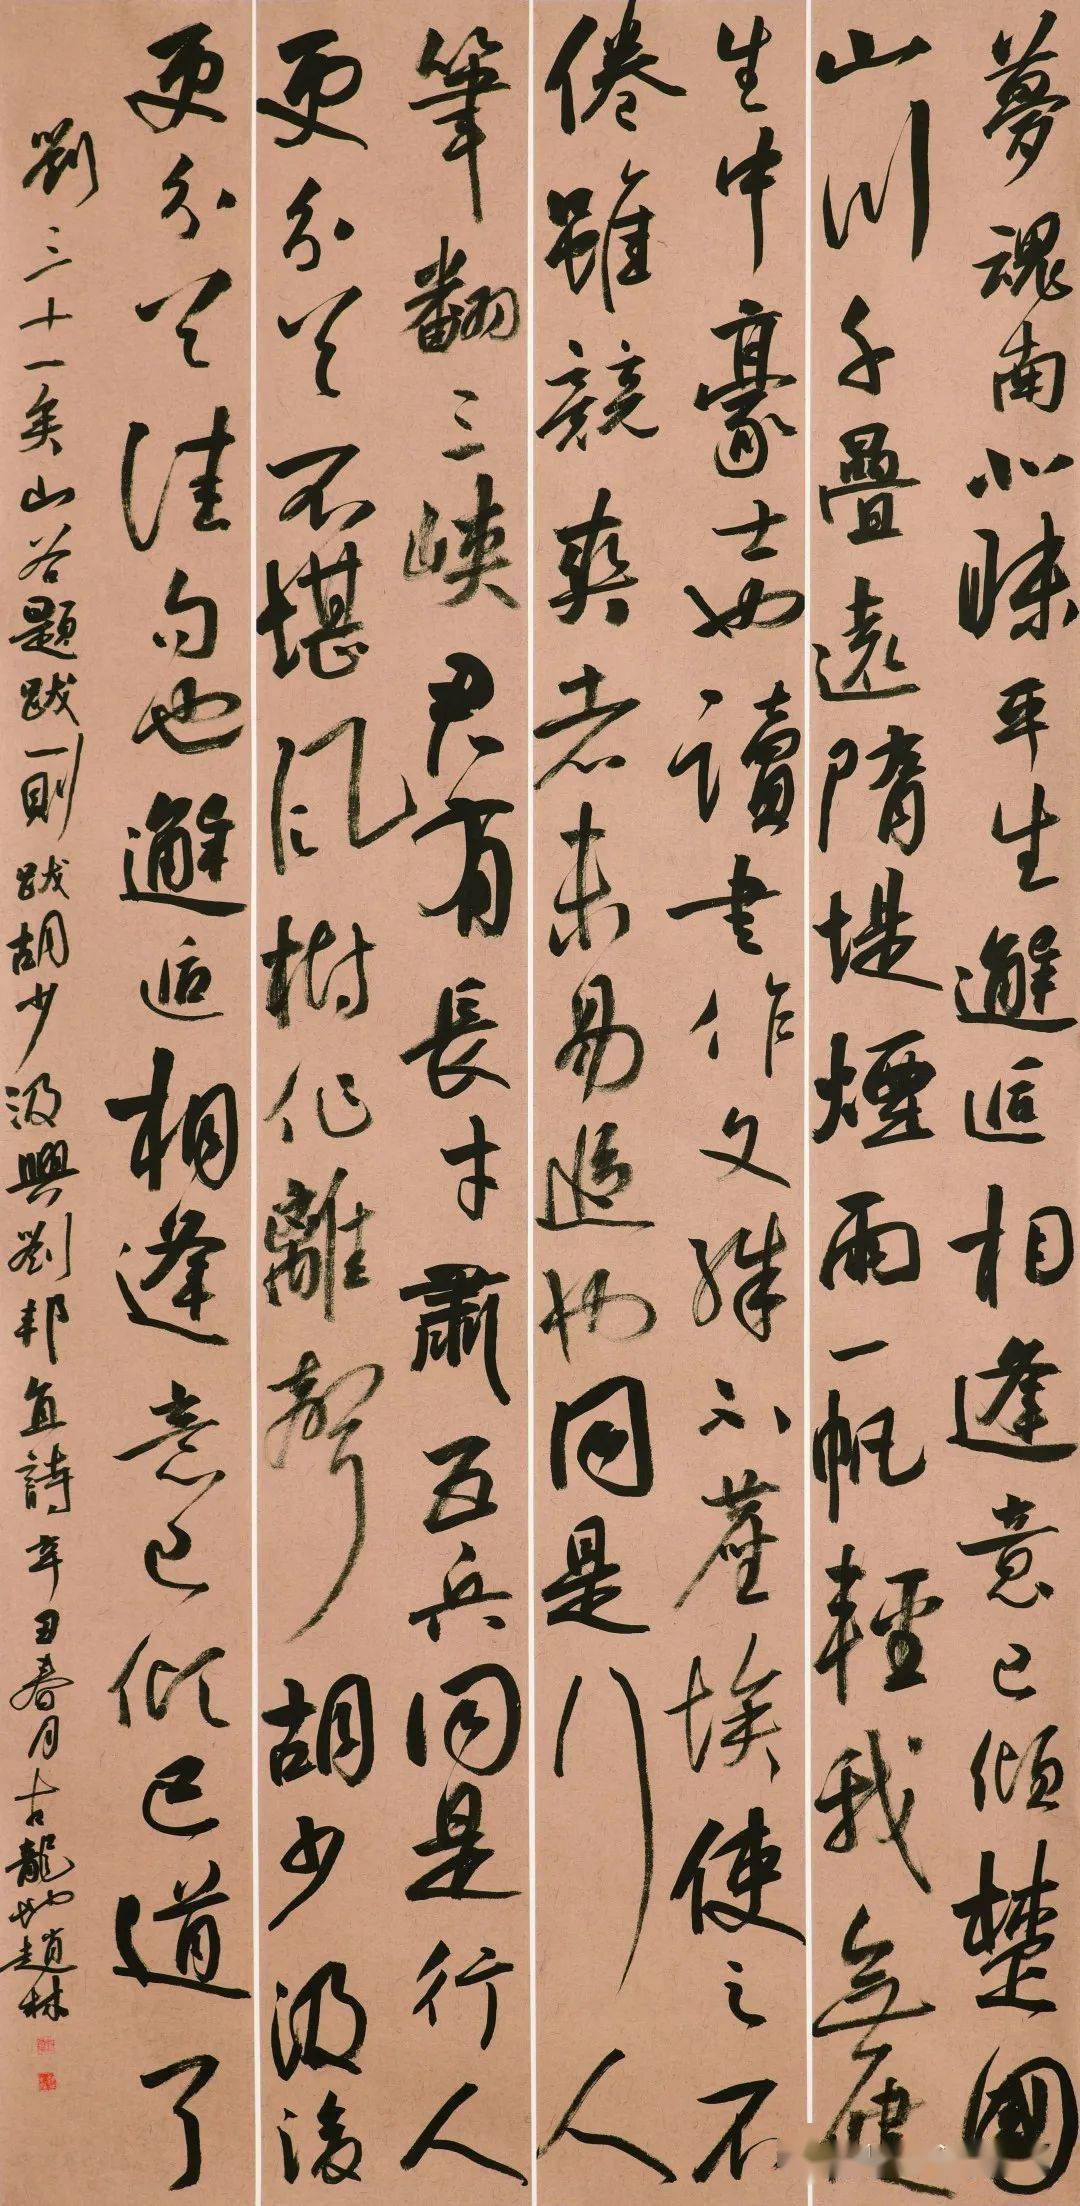 夢魂南北昧平生邂逅相逢意已傾楚國
山川千疊遠隋堤煙雨一帆輕我無健
生中豪士也讀書作文殊不塵埃使之不
倦雖競爽者未易追也同是行人
筆翻三峽君有長才肅五兵同是行人
更分首不堪風樹作離聲胡少汲後
更分首佳句也邂逅相逢意已傾已道了
劉三十一矣山谷題跋一則跋胡少汲與劉邦直詩辛丑春月古龍地趙林